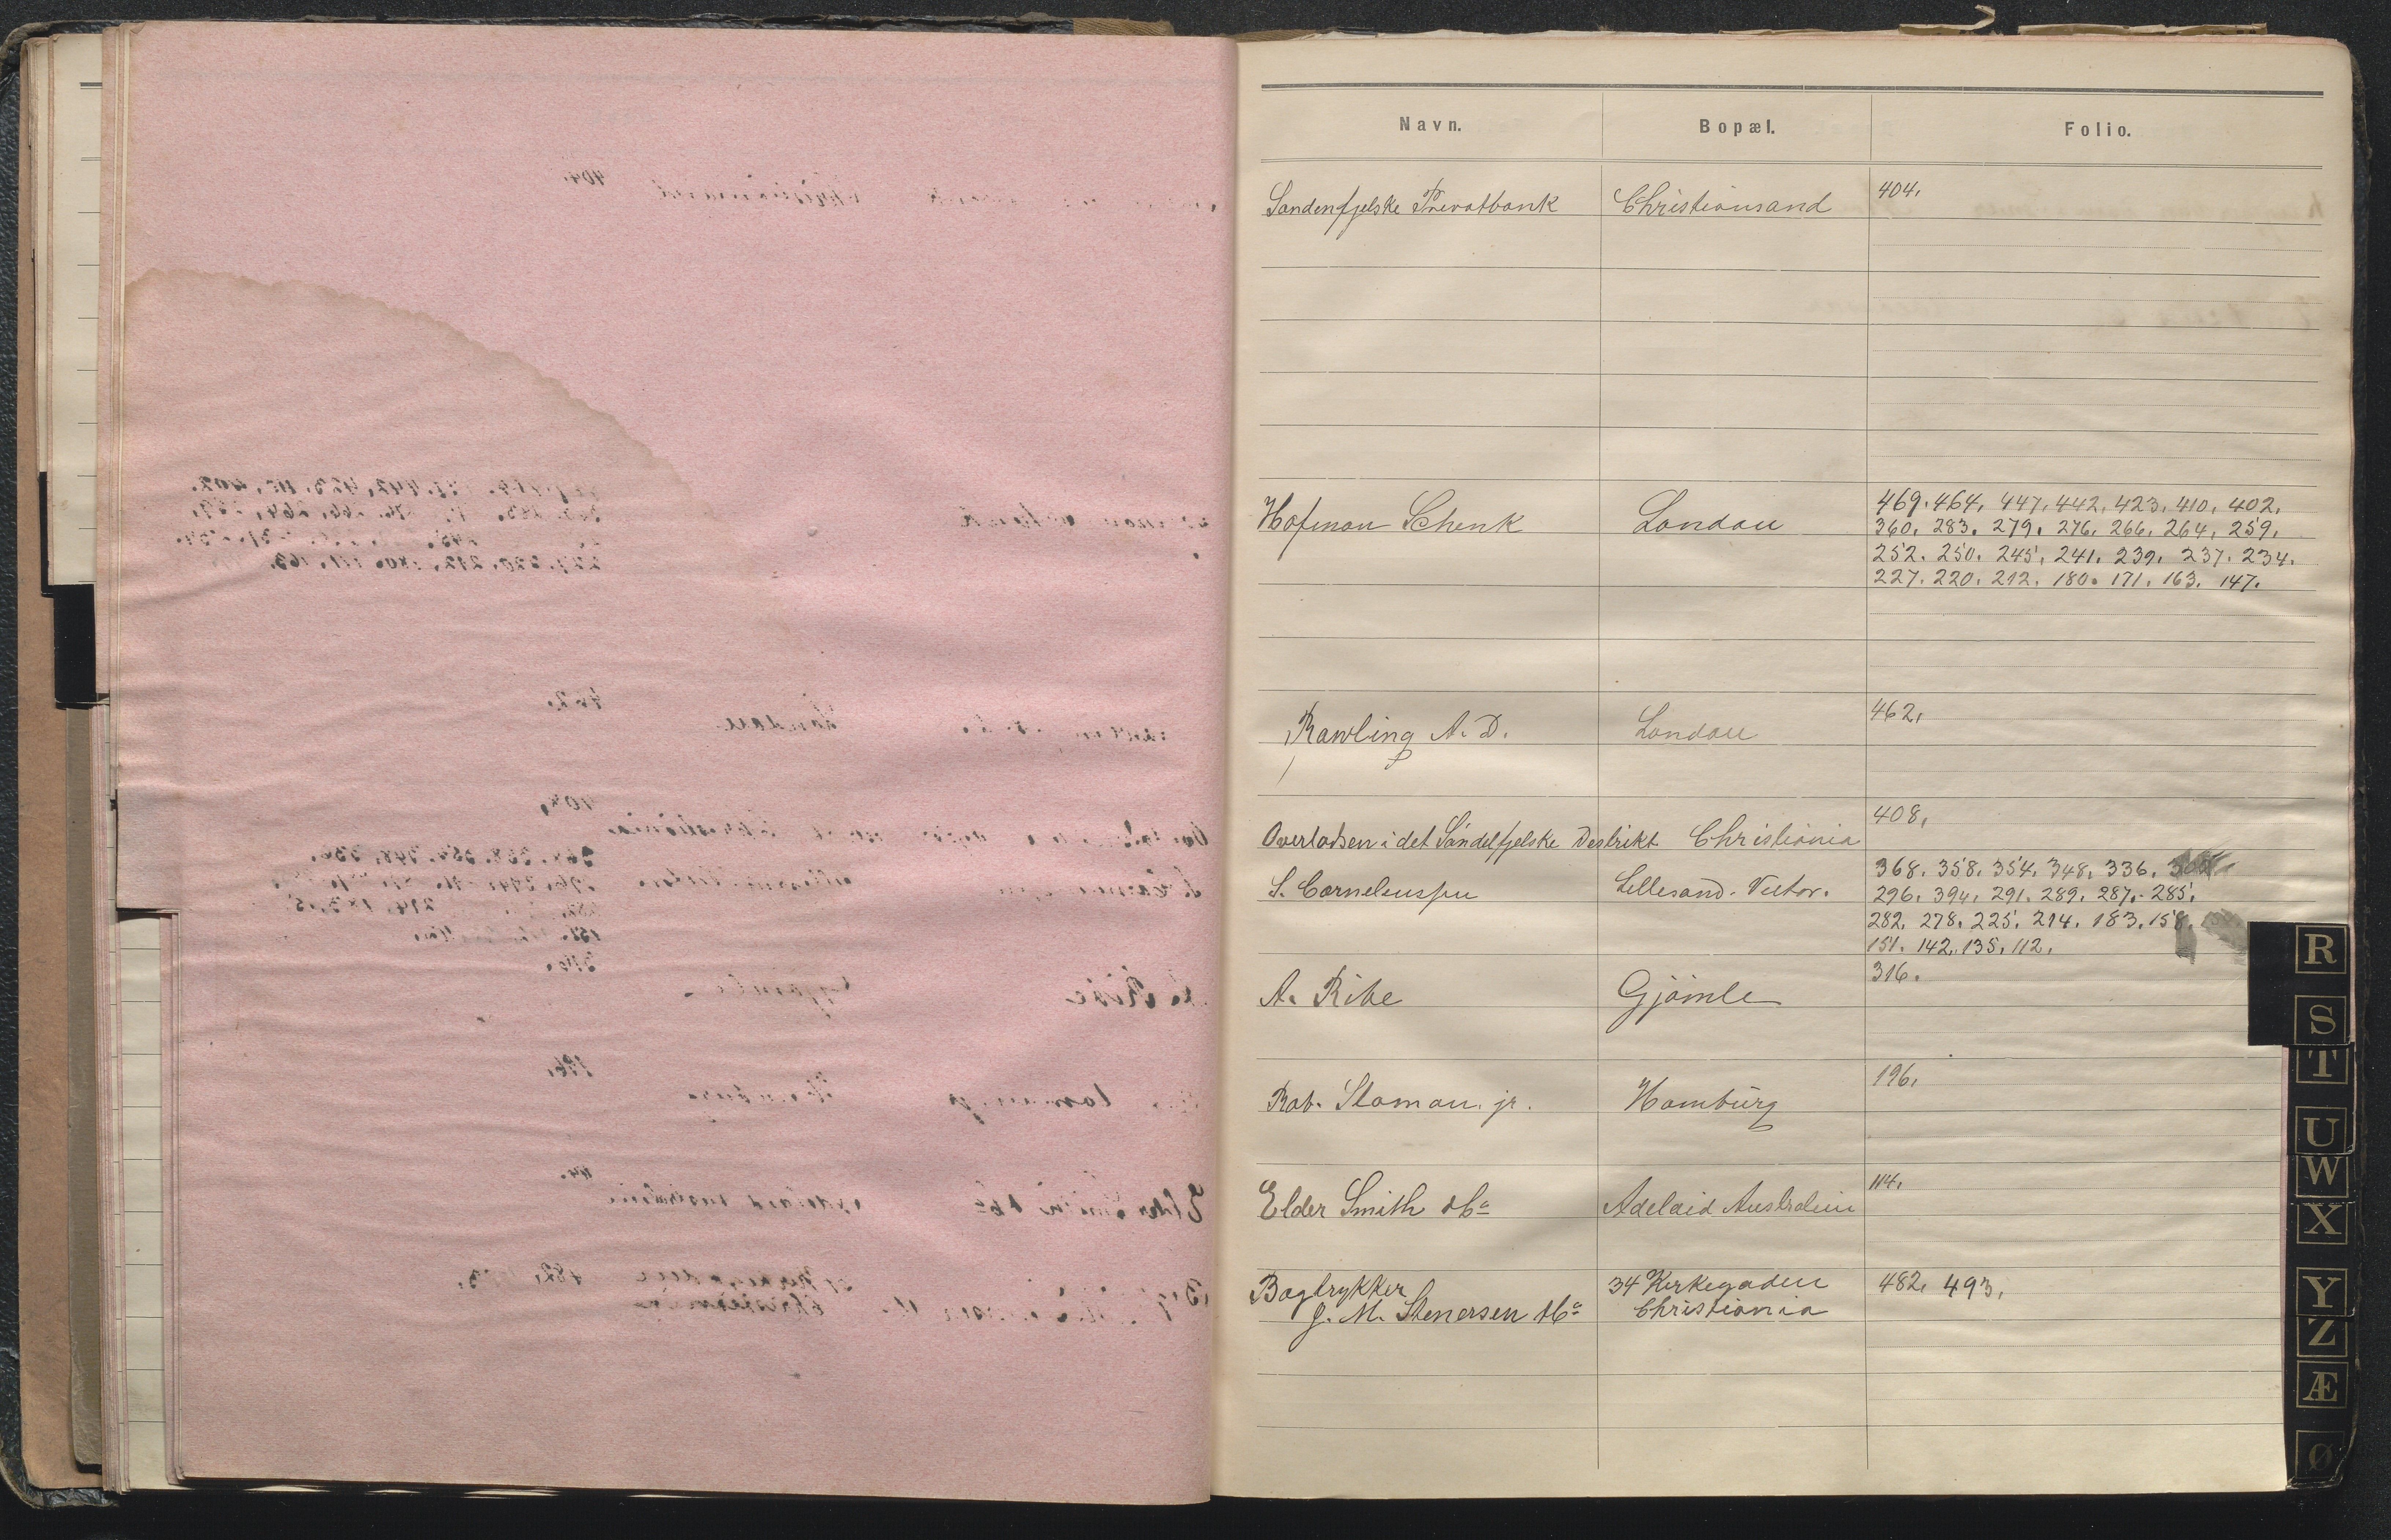 Navn. Bopæl. Folio.
Söndenfjelske Privatbank Christiansand 404.
Hofman Schenk London 469. 464. 447. 442. 423. 410. 402.
360. 283. 279. 276. 266. 264. 259.
252. 250. 245. 241. 239. 237. 234.
227. 220. 212. 180. 171. 163. 147.
Rawling A. D. London 462.
Overlodsen i det Söndelfjelske Destrikt Christiania 408.
S. Corneliussen Lillesand. Victor. 368. 358. 354. 348. 336.
296. 394. 291. 289. 287. 285.
282. 278. 225. 214. 183. 158.
151. 142. 135. 112.
A. Ribe Gjömle 316.
Rob. Sloman. jr. Hamburg 196.
Elder Smith & Co Adelaid Australien 114.
Bogtrykker 34 Kirkegaden 482. 493.
J. M. Stenersen & Co Christiania
R
S
T
U
W
X
Y
Z
Æ
Ø